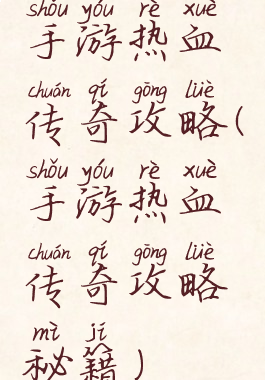 shǒu yóu rè xuè
手游热血
chuán qí gōng lüè
传奇攻略(
shǒu yóu rè xuè
手游热血
chuán qí gōng lüè
传奇攻略
mì jí
秘籍)